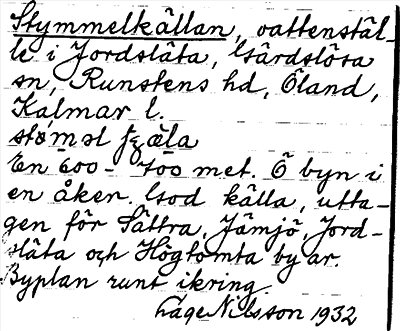 Stymmelkällan, vattenstäl-
le i Jordsläta, Gärdslösa
sn, Runstens hd, Öland,
Kalmar l.
En 600 - 700 met. Ö byn i
en åker. God källa, utta-
gen för Sättra, Jämjö, Jord-
släta och Högtomta byar.
Byplan runt ikring.
Lage Nilsson 1932